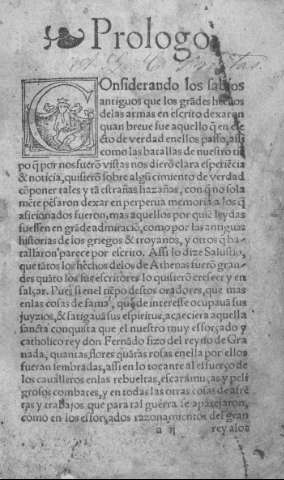 Prologo
Onsiderando los sabios
antiguos que los grãdes hechos
delas armas en escrito dexaron
quan breue fue aquello q̃ en efe
cto de verdad enellos passo, assi
como las batallas de nuestro tiẽ
po q̃ por nos fuerõ vistas nos dierõ clara esperiẽcia
& noticia, quisierõ sobre algũ cimiento de verdad
cõponer tales y tã estrañas hazañas, con q̃ no sola
mẽte pẽsaron dexar en perpetua memoria a los q̃
aficionados fueron, mas aquellos por quiẽ leydas
fuessen en grãde admiraciõ, como por las antiguas
historias de los griegos & troyanos, y otros q̃ ba-
tallaron parece por escrito. Assi lo dize Salustio,
que tãtos los hechos delos de Athenas fuerõ gran-
des quãto los sus escritores lo quisierõ crescer y en
salçar. Pues si enel tiẽpo destos oradores, que mas
enlas cosas de fama, que de interesse ocupauã sus
juyzios, & fatigauã sus espiritus, acaeciera aquella
sancta conquista que el nuestro muy esforçado y
catholico rey don Fernãdo fizo del reyno de Gra
nada, quantas flores quãtas rosas enella por ellos
fueran sembradas, assi en lo tocante al esfuerço de
los caualleros enlas rebueltas, escaramuças y peli
grosos combates, y en todas las otras cosas de afrẽ
tas y trabajos que para tal guerra se aparejaron,
como en los esforçados razonamientos del gran
rey alos